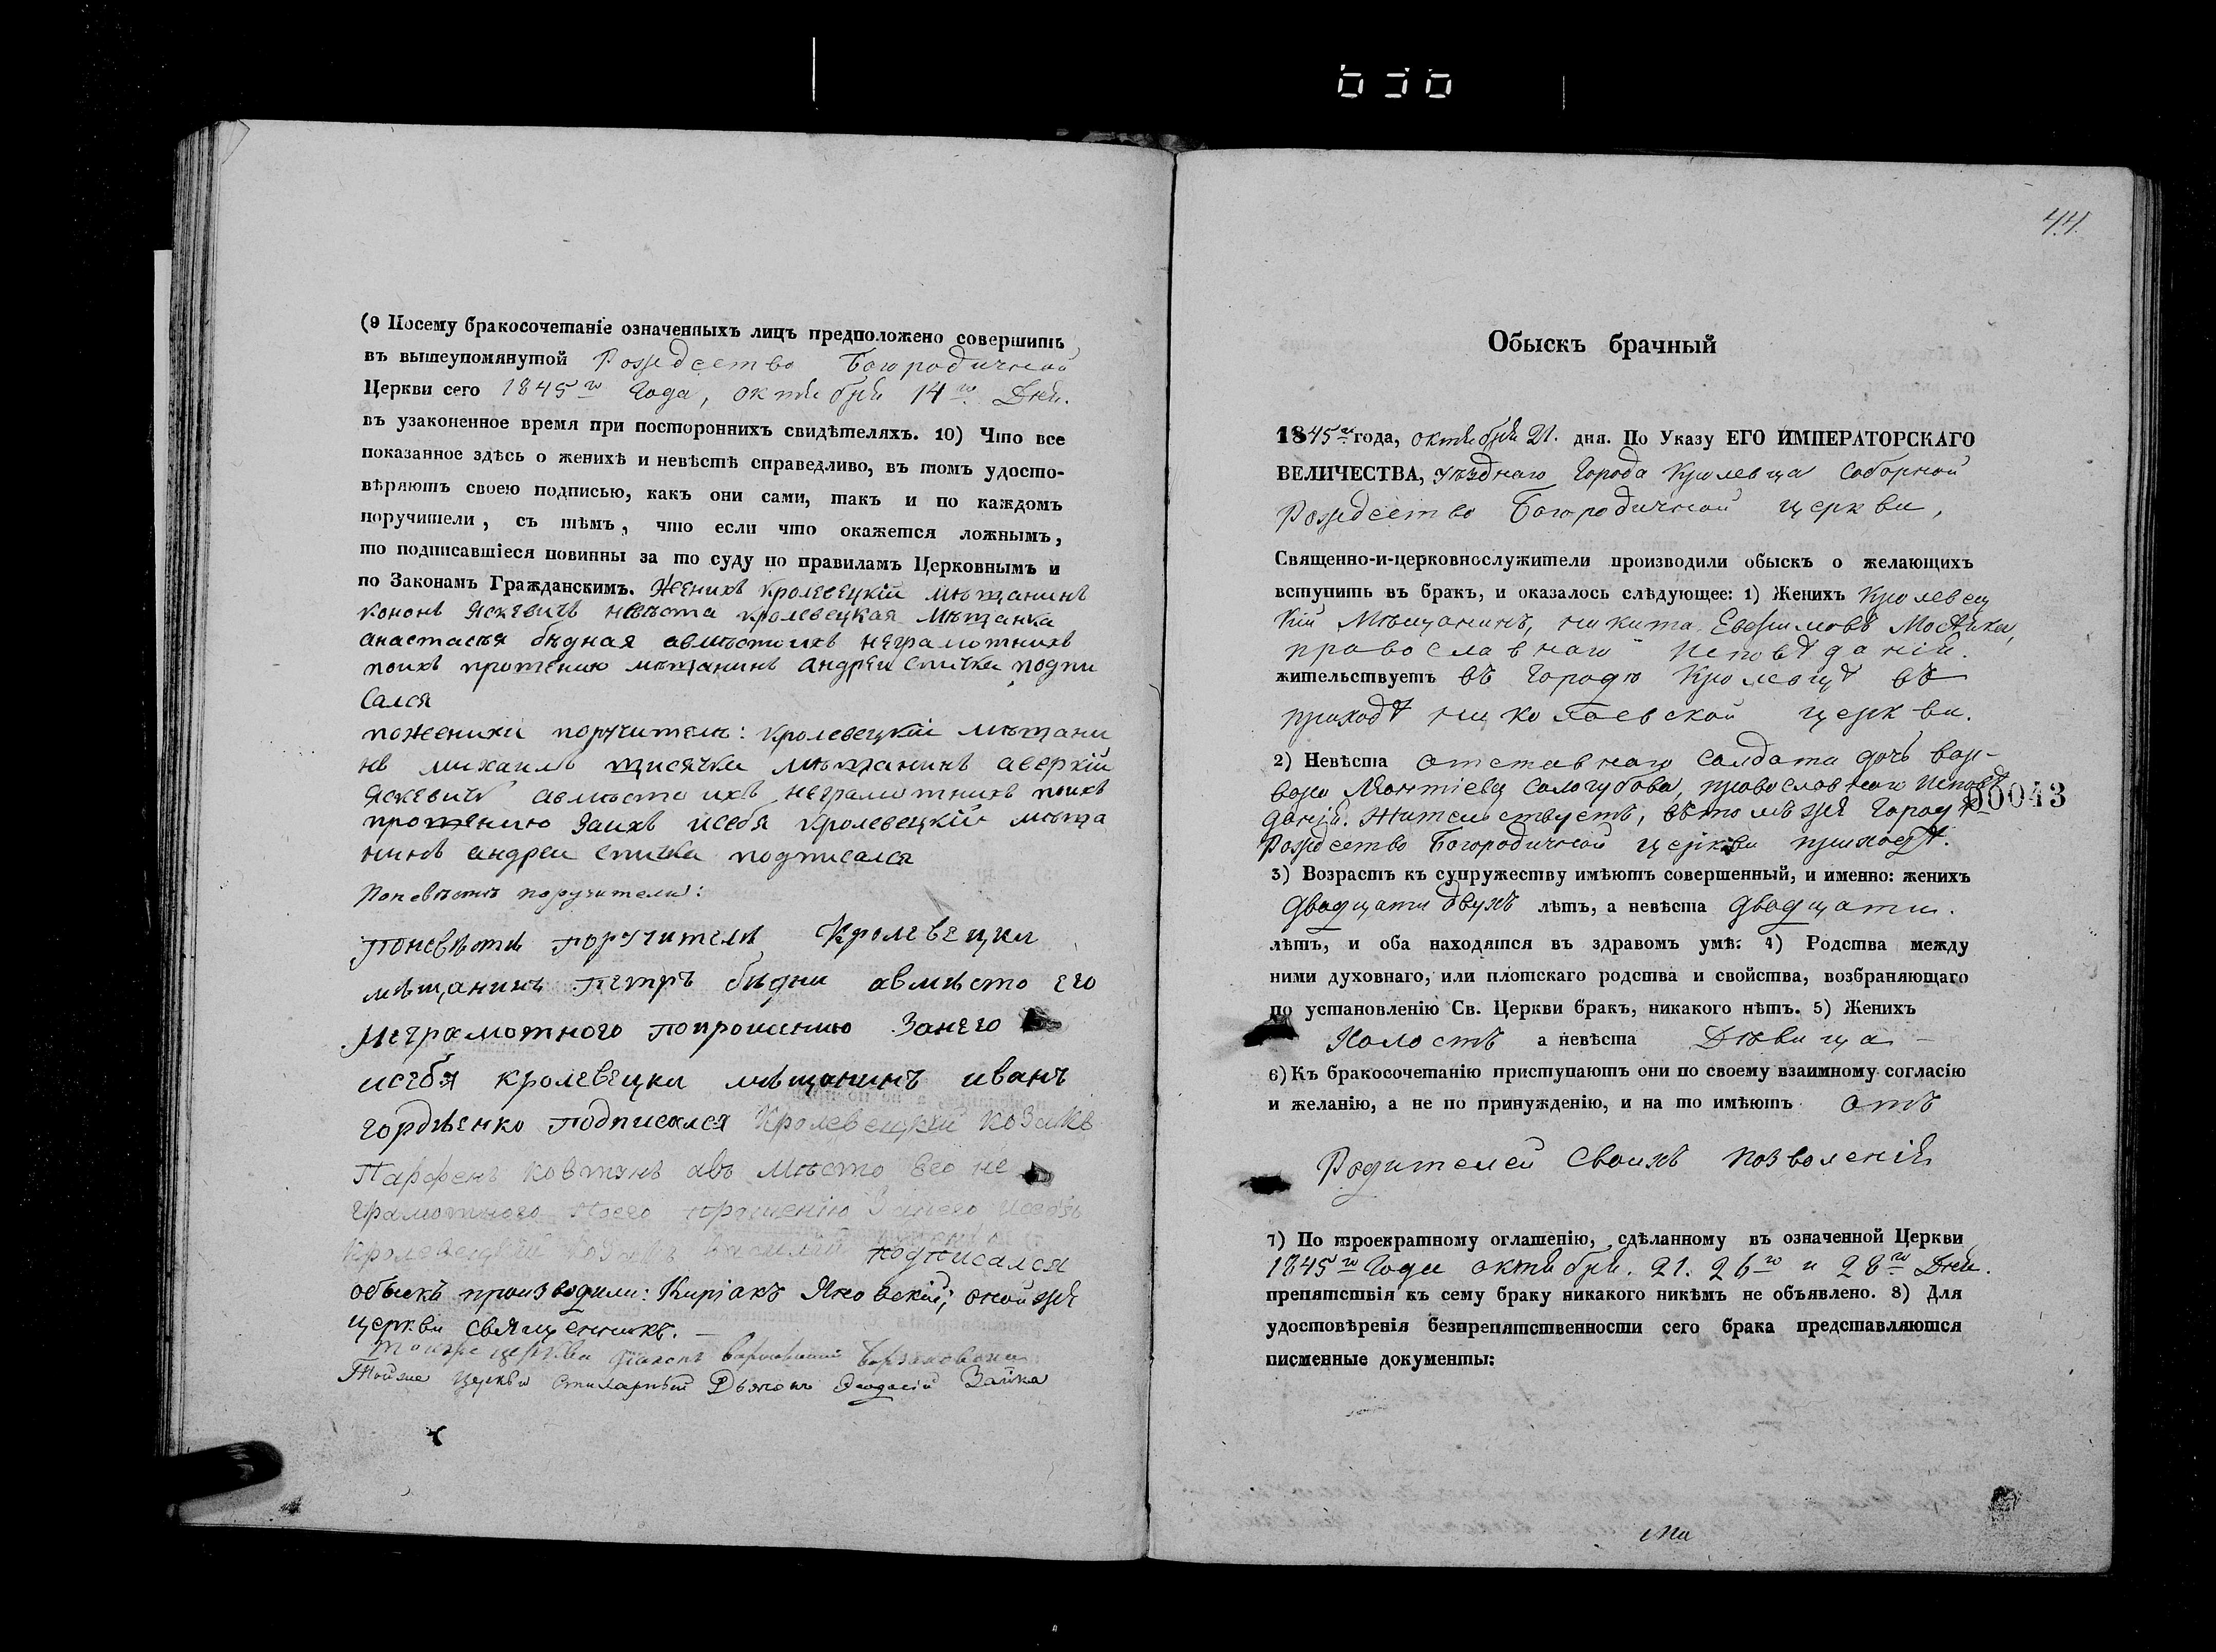 (9 Посему бракосочетаніе означенныхъ лицъ предположено совершить
въ вышеупомянутой Рождество Богородичной
Церкви сего 1845го Года, октября 14го Дня.
въ узаконенное время при постороннихъ свидѣтеляхъ. 10) Что все
показанное здѣсь о женихѣ и невѣстѣ справедливо, въ томъ удосто-
вѣряютъ своею подписью, какъ они сами, такъ и по каждомъ
поручители, съ тѣмъ, что если что окажется ложнымъ,
то подписавшіеся повинны за то суду по правиламъ Церковнымъ и
по Законамъ Гражданскимъ. Женихъ кролевецкій мѣщанинъ
кононъ яскевичъ невѣста кролевецкая мѣщанка
анастасѣя бѣдная авмѣстоихъ неграмотнихъ
поихъ прошению мѣщанинъ андреи спичка подпи
сался
поженихи поручители: кролевецкій мѣщани
нъ михаилъ тисячка мѣщанинъ аверкій
яскевичъ авмѣсто ихъ неграмотнихъ поихъ
прошению заихъ исебя кролевецкій мѣща
нинъ андреи спичка подписался
Поневѣстѣ поручители:
поневѣстѣ поручителѣ Кролевецки
мѣщанинъ петръ бѣдни авмѣсто его
неграмотного попрошению Занего
исебя кролевецки мѣщанинъ иванъ
гордѣенко подписался Кролевецкій козакъ
Парфенъ Ковтунъ авъ мѣсто его не
грамотного поего прошенію Занего исебя
Кролевецкій козакъ василий подписался
обыскъ производили: Киріакъ Яновскій, оной же
церкви священникъ.
тояже церкви діаконъ
Тойже Церкви Дьячокъ Феодосій Зайка
44.
Обыскъ брачный
1845го года, октября 21. дня. По Указу ЕГО ИМПЕРАТОРСКАГО
ВЕЛИЧЕСТВА, уѣзднаго Города Кролевца Соборной
Рождество Богородичной церкви,
Священно-и-церковнослужители производили обыскъ о желающихъ
вступить въ бракъ, и оказалось слѣдующее: 1) Женихъ Кролевец
кій Мѣщанинъ, никита Евфимовъ
православнаго исповѣданія.
жительствуетъ въ Городѣ Кролевцѣ въ
приходѣ николаевской церкви.
2) Невѣста отставнаго Солдата дочь вар-
вара Сологубова, православнаго исповѣ
00043
данія. жительствуетъ, вътомъ же Городѣ
Рождество Богородичной церкви приходѣ.
3) Возрастъ къ супружеству имѣютъ совершенный, и именно: женихъ
двадцати двухъ лѣтъ, а невѣста двадцати.
лѣтъ, и оба находятся въ здравомъ умѣ: 4) Родства между
ними духовнаго, или плотскаго родства и свойства, возбраняющаго
по установленію Св. Церкви бракъ, никакого нѣтъ. 5) Женихъ
Холостъ а невѣста Дѣвица
6) Къ бракосочетанію приступаютъ они по своему взаимному согласію
и желанію, а не по принужденію, и на то имѣютъ отъ
Родителей своихъ позволенія
7) По троекратному оглашенію, сдѣланному въ означенной Церкви
1845го Года октября. 21. 26го и 28го Дня.
препятствія къ сему браку никакого никѣмъ не объявлено. 8) Для
удостовѣренія безпрепятственности сего брака представляются
писменные документы: